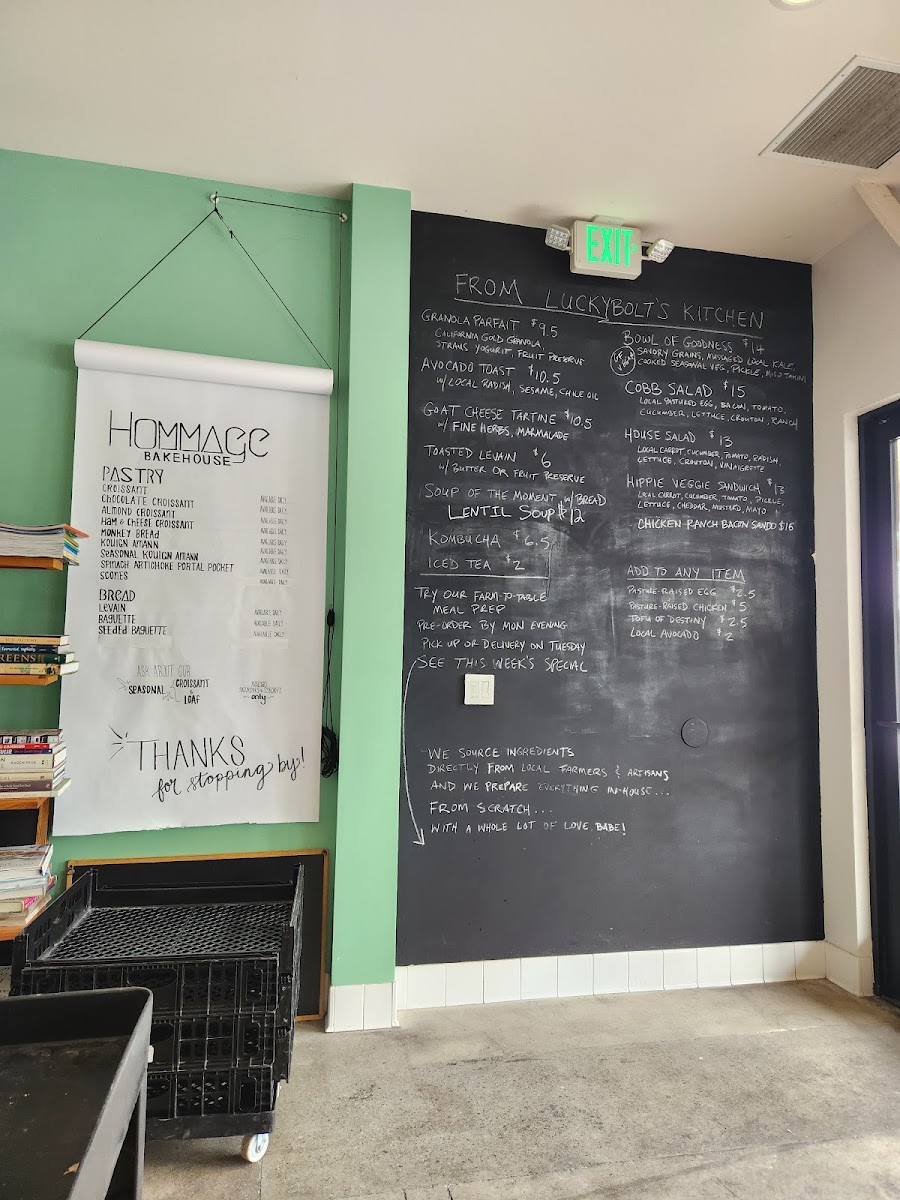 EXIT
HOMMAGE
BAKEHOUSE
PASTRY
CROISSANT
CHOCOLATE CROISSANT AVAILABLE DAILY
ALMOND CROISSANT AVAILABLE DAILY
HAM & CHEESE CROISSANT AVAILABLE DAILY
MONKEY BREAD AVAILABLE DAILY
KOUIGN AMANN AVAILABLE DAILY
SEASONAL KOUIGN AMANN AVAILABLE DAILY
SPINACH ARTICHOKE PORTAL POCKET AVAILABLE DAILY
SCONES AVAILABLE DAILY
BREAD
LEVAIN AVAILABLE DAILY
BAGUETTE AVAILABLE DAILY
SEEDED BAGUETTE AVAILABLE DAILY
ASK ABOUT OUR
SEASONAL CROISSANT
& LOAF
only
THANKS
for stopping by!
FROM LUCKYBOLT'S KITCHEN
GRANOLA PARFAIT $9.5
CALIFORNIA GOLD GRANOLA,
STRAUS YOGURT, FRUIT PRESERVE
AVOCADO TOAST $10.5
W/ LOCAL RADISH, SESAME, CHILE OIL
GOAT CHEESE TARTINE $10.5
W/ FINE HERBS, MARMALADE
TOASTED LEVAIN $6
W/ BUTTER OR FRUIT PRESERVE
SOUP OF THE MOMENT W/ BREAD
LENTIL SOUP $12
KOMBUCHA $6.5
ICED TEA $2
TRY OUR FARM-TO-TABLE
MEAL PREP
PRE-ORDER BY MON EVENING
PICK UP OR DELIVERY ON TUESDAY
SEE THIS WEEK'S SPECIAL
WE SOURCE INGREDIENTS
DIRECTLY FROM LOCAL FARMERS & ARTISANS
AND WE PREPARE EVERYTHING IN-HOUSE...
FROM SCRATCH...
WITH A WHOLE LOT OF LOVE, BABE!
BOWL OF GOODNESS $14
GF VEGAN
SAVORY GRAINS, MASSAGED LOCAL KALE,
COOKED SEASONAL VEG, PICKLE, MISO TAHINI
COBB SALAD $15
LOCAL PASTURED EGG, BACON, TOMATO,
CUCUMBER, LETTUCE, CROUTON, RANCH
HOUSE SALAD $13
LOCAL CARROT, CUCUMBER, TOMATO, RADISH,
LETTUCE, CROUTON, VINAIGRETTE
HIPPIE VEGGIE SANDWICH $13
LOCAL CARROT, CUCUMBER, TOMATO, PICKLE,
LETTUCE, CHEDDAR, MUSTARD, MAYO
CHICKEN RANCH BACON SANDO $16
ADD TO ANY ITEM
PASTURE-RAISED EGG $2.5
PASTURE-RAISED CHICKEN $5
TOFU OF DESTINY $2.5
LOCAL AVOCADO $2